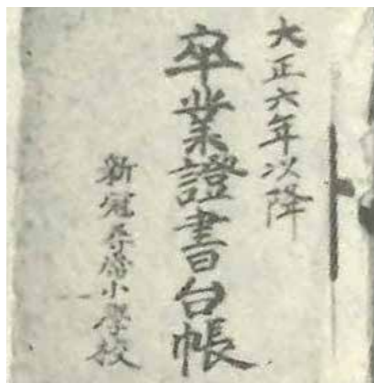 大正六年以降
卒業證書台帳
新冠尋常小學校